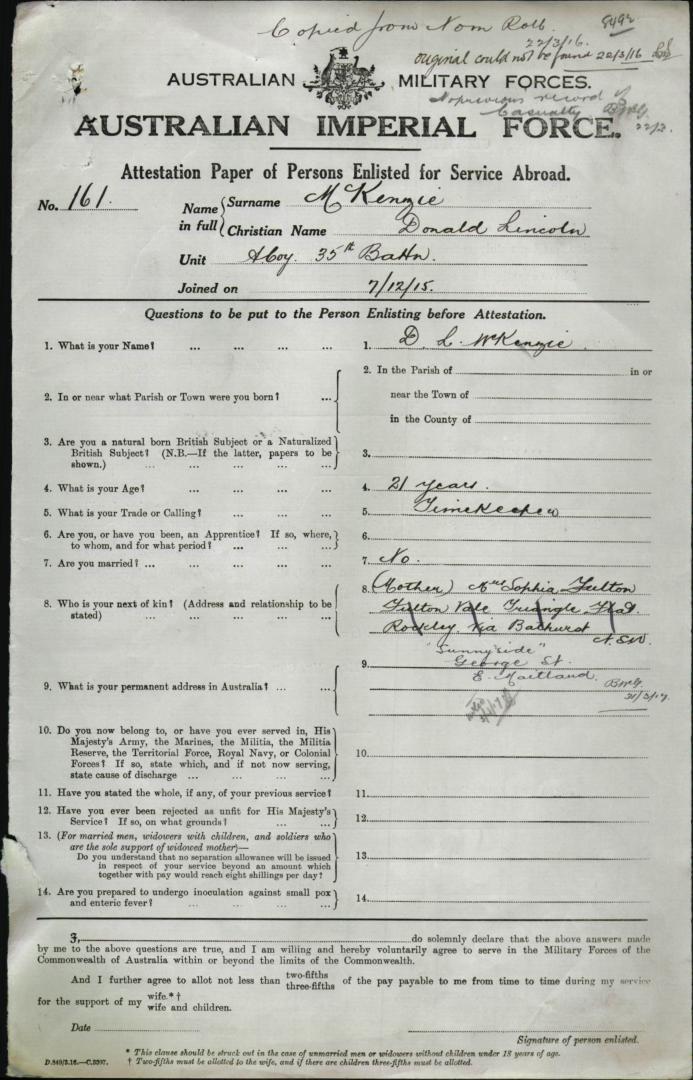 Copied from Nom Roll
22/3/16.
original could not be found 22/3/16
AUSTRALIAN MILITARY FORCES.
No previous record of
Casualty
22/3.
AUSTRALIAN IMPERIAL FORCE.
Attestation Paper of Persons Enlisted for Service Abroad.
No. 161.
Name in full
Surname McKenzie
Christian Name Donald Lincoln
Unit A Coy. 35th Battn.
Joined on 7/12/15.
Questions to be put to the Person Enlisting before Attestation.
1. What is your Name? ... ... ... ... 1. D. L. McKenzie
2. In or near what Parish or Town were you born? ... 2. In the Parish of in or
near the Town of
in the County of
3. Are you a natural born British Subject or a Naturalized
British Subject? (N.B.—If the latter, papers to be
shown.) ... ... ... ... 3.
4. What is your Age? ... ... ... ... 4. 21 years.
5. What is your Trade or Calling? ... ... ... 5. Timekeeper
6. Are you, or have you been, an Apprentice? If so, where,
to whom, and for what period? ... ... ... 6.
7. Are you married? ... ... ... ... ... 7. No.
8. Who is your next of kin? (Address and relationship to be
stated) ... ... ... ... 8. (Mother) Mrs Sophia Fulton
Fulton Vale Triangle Flat
Rockley via Bathurst
N.S.W.
"Sunnyside"
George St.
E. Maitland.
21/3/17.
9. What is your permanent address in Australia? ... ... 9.
10. Do you now belong to, or have you ever served in, His
Majesty's Army, the Marines, the Militia, the Militia
Reserve, the Territorial Force, Royal Navy, or Colonial
Forces? If so, state which, and if not now serving,
state cause of discharge ... ... ... ... 10.
11. Have you stated the whole, if any, of your previous service? 11.
12. Have you ever been rejected as unfit for His Majesty's
Service? If so, on what grounds? ... ... 12.
13. (For married men, widowers with children, and soldiers who
are the sole support of widowed mother)—
Do you understand that no separation allowance will be issued
in respect of your service beyond an amount which
together with pay would reach eight shillings per day? 13.
14. Are you prepared to undergo inoculation against small pox
and enteric fever? ... ... ... ... 14.
I, do solemnly declare that the above answers made
by me to the above questions are true, and I am willing and hereby voluntarily agree to serve in the Military Forces of the
Commonwealth of Australia within or beyond the limits of the Commonwealth.
And I further agree to allot not less than two-fifths three-fifths of the pay payable to me from time to time during my service
for the support of my wife.*† wife and children.
Date
Signature of person enlisted.
* This clause should be struck out in the case of unmarried men or widowers without children under 18 years of age.
D.849/3.16.—C.5397. † Two-fifths must be allotted to the wife, and if there are children three-fifths must be allotted.